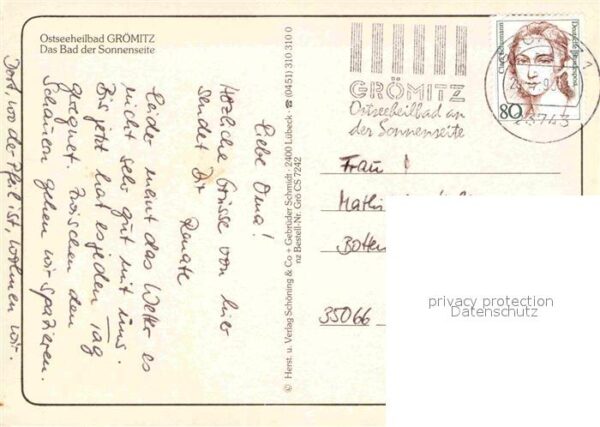 Ostseeheilbad GRÖMITZ
Das Bad der Sonnenseite
Liebe Oma!
Herzliche Grüsse von hier
sendet Dir Renate
Leider meint das Wetter es
nicht sehr gut mit uns.
Bis jetzt hat es jeden Tag
geregnet. Zwischen den
Schauern gehen wir spazieren.
Dort, wo der Pfeil ist, wohnen wir.
© Herst. u. Verlag Schöning & Co + Gebrüder Schmidt · 2400 Lübeck · ☎ (0451) 310 310 0
nz Bestell-Nr. Grö CS 7242
GRÖMITZ
Ostseeheilbad an
der Sonnenseite
23743
Clara Schumann
Deutsche Bundespost
80
Frau
35066
privacy protection
Datenschutz